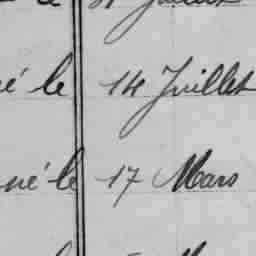 le Juillet
né le 14 Juillet
né le 17 Mars